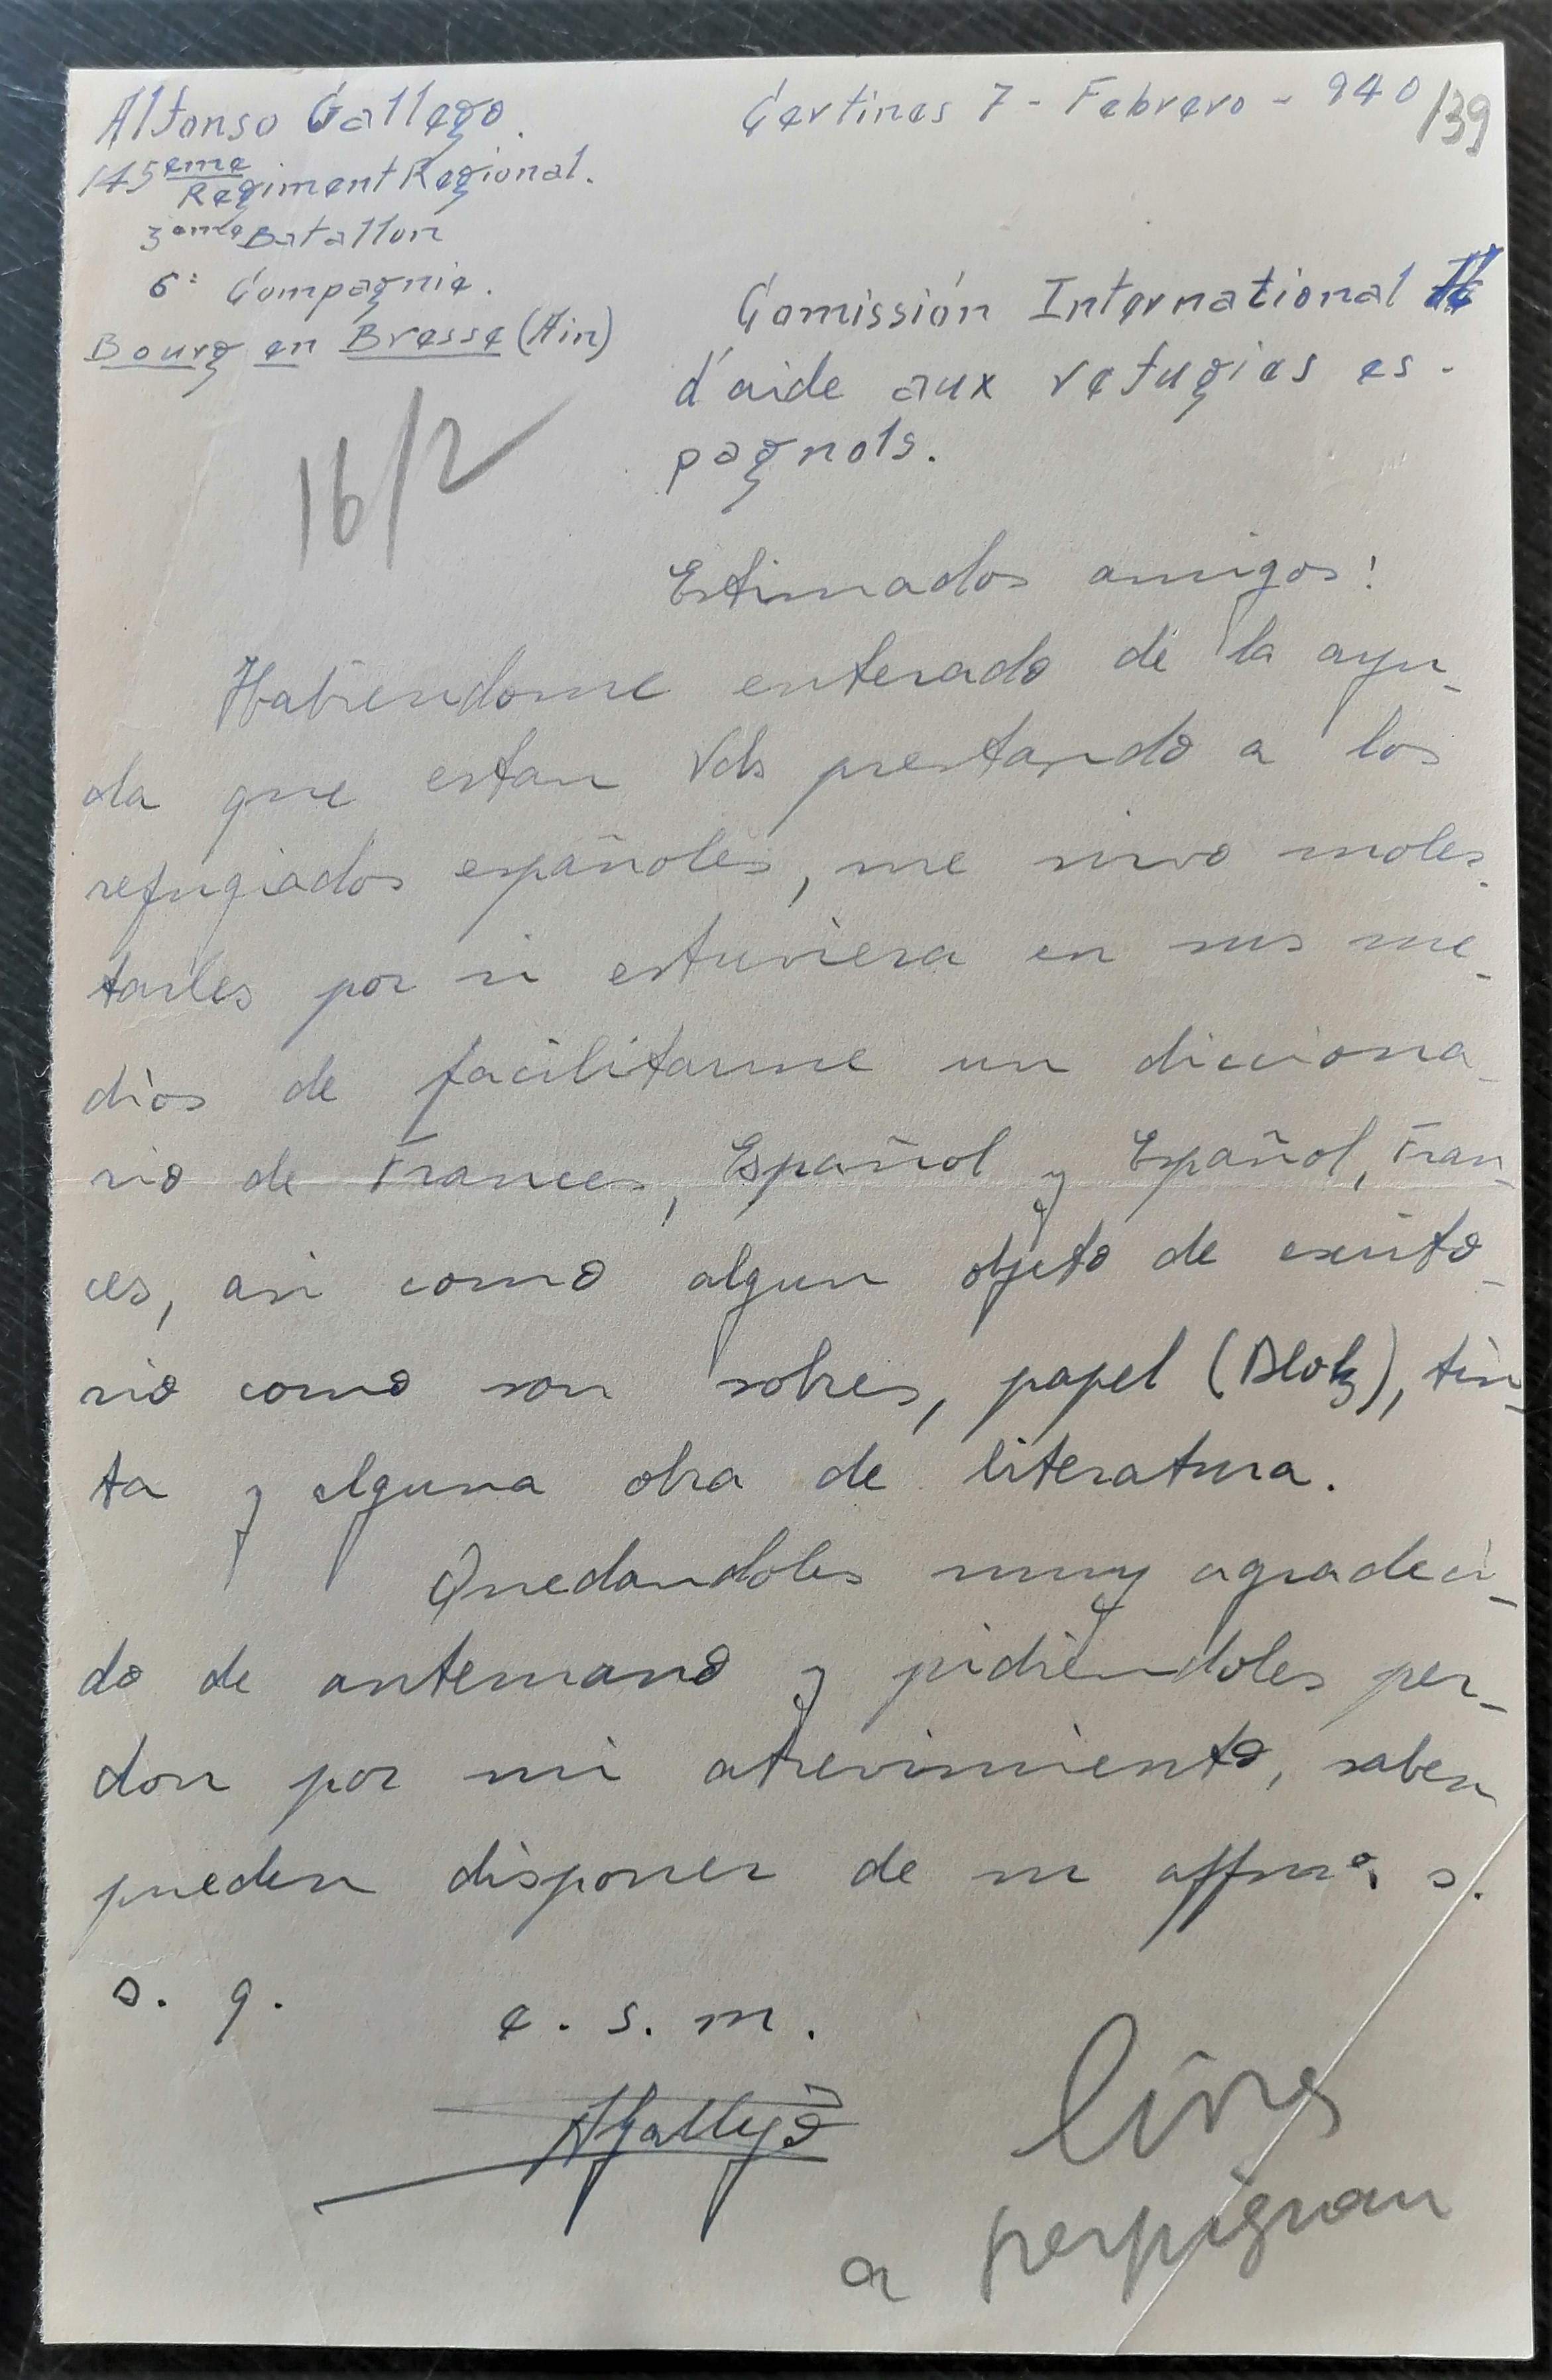 Alfonso Gallego.
145eme
Regiment Regional.
3eme Batallon
6ª Compagnie.
Bourg en Bresse (Ain)
Certines 7 - Febrero - 940
139
16/2
Comissión International
d'aide aux refugies es-
pagnols.
Estimados amigos:
Habiendome enterado de la ayu-
da que estan Vds prestando a los
refugiados españoles, me sirvo moles-
tarles por si estuviera en sus me-
dios de facilitarme un dicciona-
rio de Frances, Español y Español, Fran-
ces, asi como algun objeto de escrito-
rio como son sobres, papel (Blok), tin-
ta y alguna obra de literatura.
Quedandoles muy agradeci-
do de antemano y pidiendoles per-
don por mi atrevimiento, saben
pueden disponer de su affmo. s.
s. q. e. s. m.
AGallego
livres
a perpignan